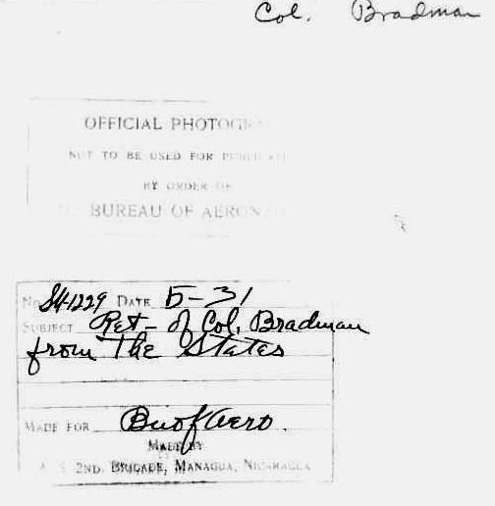 Col. Bradman
OFFICIAL PHOTOGR
NOT TO BE USED FOR PUBLICATI
BY ORDER OF
BUREAU OF AERONA
No. DATE 5-31
SUBJECT Ret- of Col. Bradman
from The States
MADE FOR Bu of Aero.
MADE BY
2ND. BRIGADE, MANAGUA, NICARAGUA